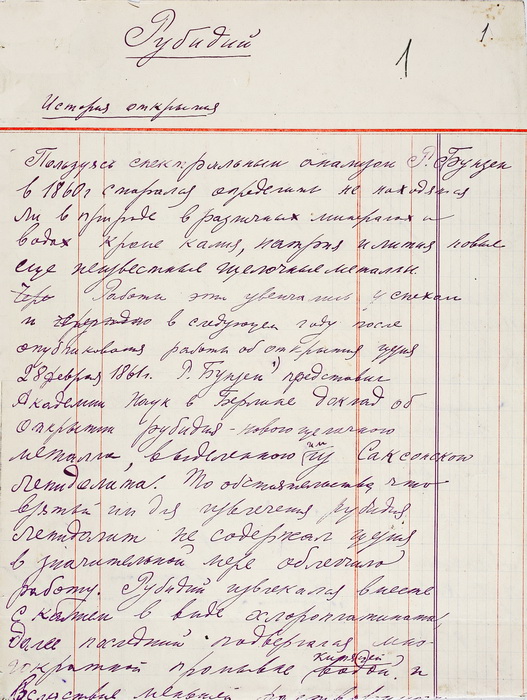 Рубидий
1
1
История открытия
Пользуясь спектральным анализом Р. Бунзен
в 1860г старался определить не находятся
ли в природе в различных минералах и
водах кроме калия, натрия и лития новые
еще неизвестные щелочные металлы.
Работы эти увенчались успехом
и в следующем году после
опубликования работы об открытии цезия
28 февраля 1861г. Р. Бунзен¹) представил
Академии Наук в Берлине доклад об
открытии рубидия - нового щелочного
металла, выделенного им из Саксонского
лепидолита. То обстоятельство, что
взятый им для извлечения рубидия
лепидолит не содержал цезия
в значительной мере облегчило
работу. Рубидий извлекался вместе
с калием в виде хлороплатината,
далее последний подвергался мно-
гократной промывке кипящей водой и
вследствие меньшей